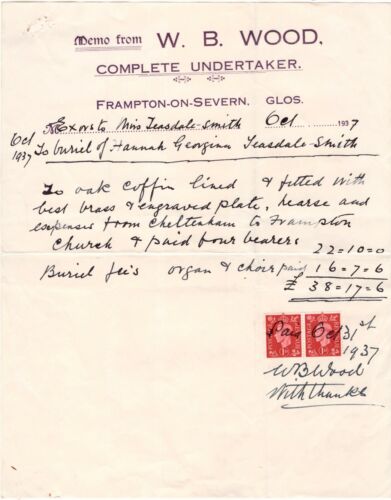 Memo from W. B. WOOD,
COMPLETE UNDERTAKER.
FRAMPTON-ON-SEVERN, GLOS.
To Exors to Miss Teasdale-Smith Oct 1937
Oct
1937
To buriel of Hannah Georgina Teasdale-Smith
To oak coffin lined & fitted with
best brass & engraved plate, hearse and
expenses from Cheltenham to Frampton
Church & paid four bearers
22=10=0
Buriel fees organ & choir paid 16=7=6
£ 38=17=6
Paid Oct 31st
1937
WBWood
With thanks